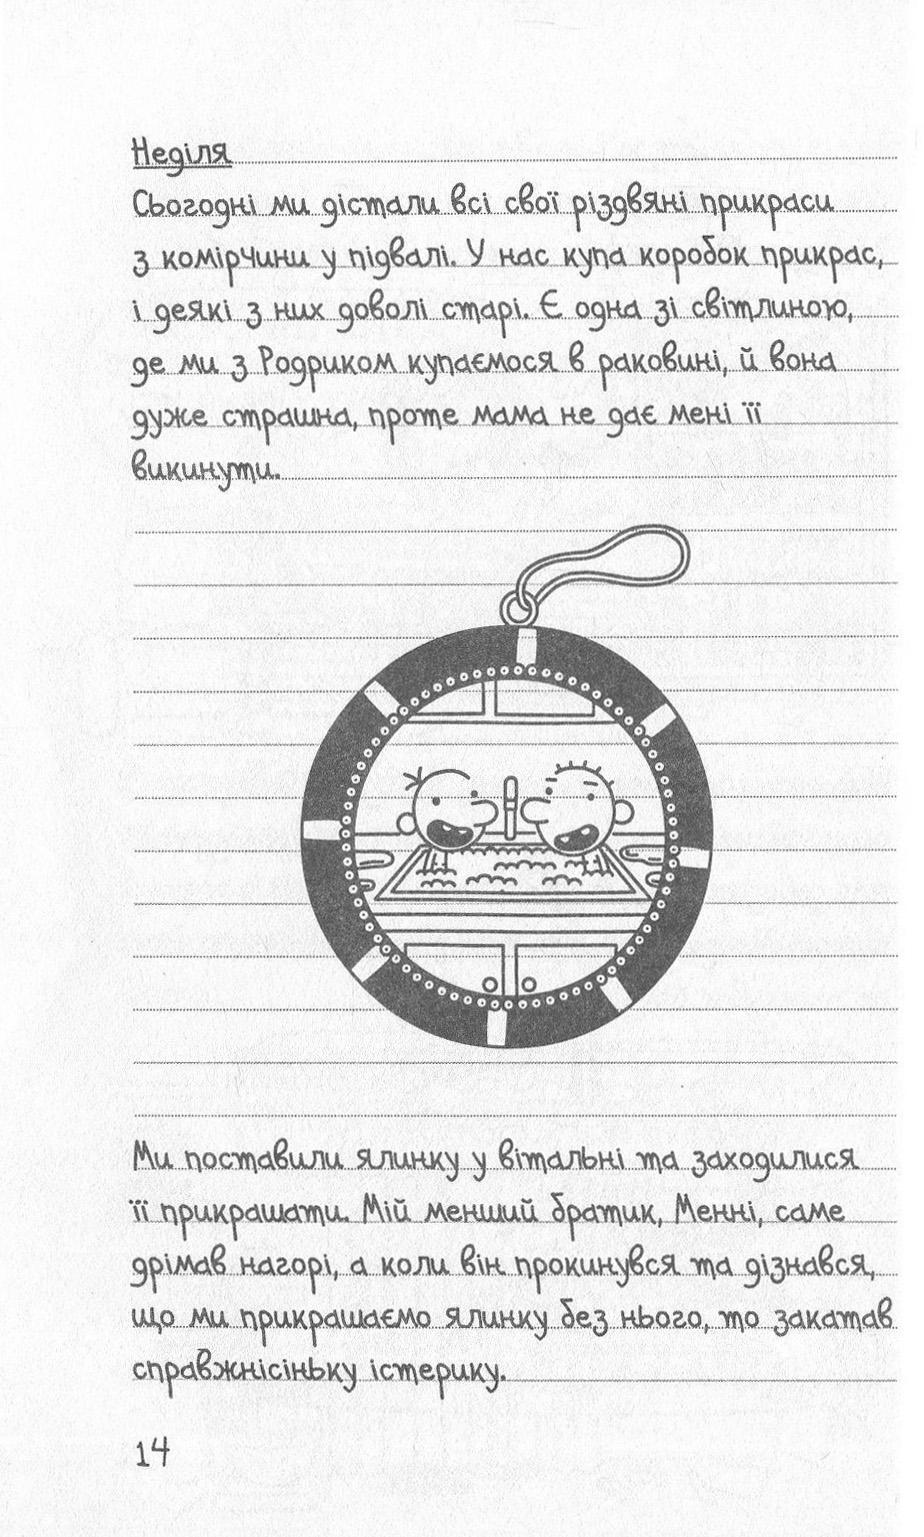 Неділя
Сьогодні ми дістали всі свої різдвяні прикраси
з комірчини у підвалі. У нас купа коробок прикрас,
і деякі з них доволі старі. Є одна зі світлиною,
де ми з Родриком купаємося в раковині, й вона
дуже страшна, проте мама не дає мені її
викинути.
Ми поставили ялинку у вітальні та заходилися
її прикрашати. Мій менший братик, Менні, саме
дрімав нагорі, а коли він прокинувся та дізнався,
що ми прикрашаємо ялинку без нього, то закатав
справжнісіньку істерику.
14